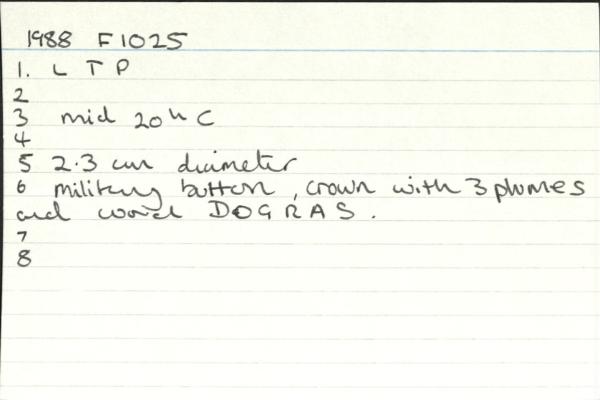 1988 F1025
1. L T P
2
3 mid 20th C
4
5 2.3 cm diameter
6 military button, crown with 3 plumes
and word DOGRAS.
7
8